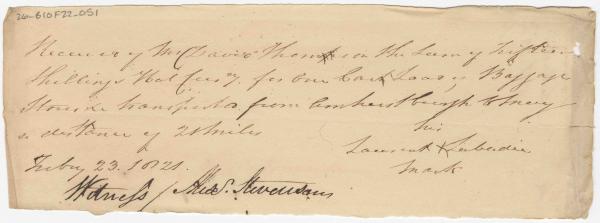 26-610F22-051
Receiv'd of Mr David Thompson the Sum of Fifteen
Shillings Hal Curr'y for One Cart Load of Baggage
transported from Amherstburgh to
a distance of miles
his
Laurent X Labadie
mark
Feby 23. 1821.
Witness Stevenson